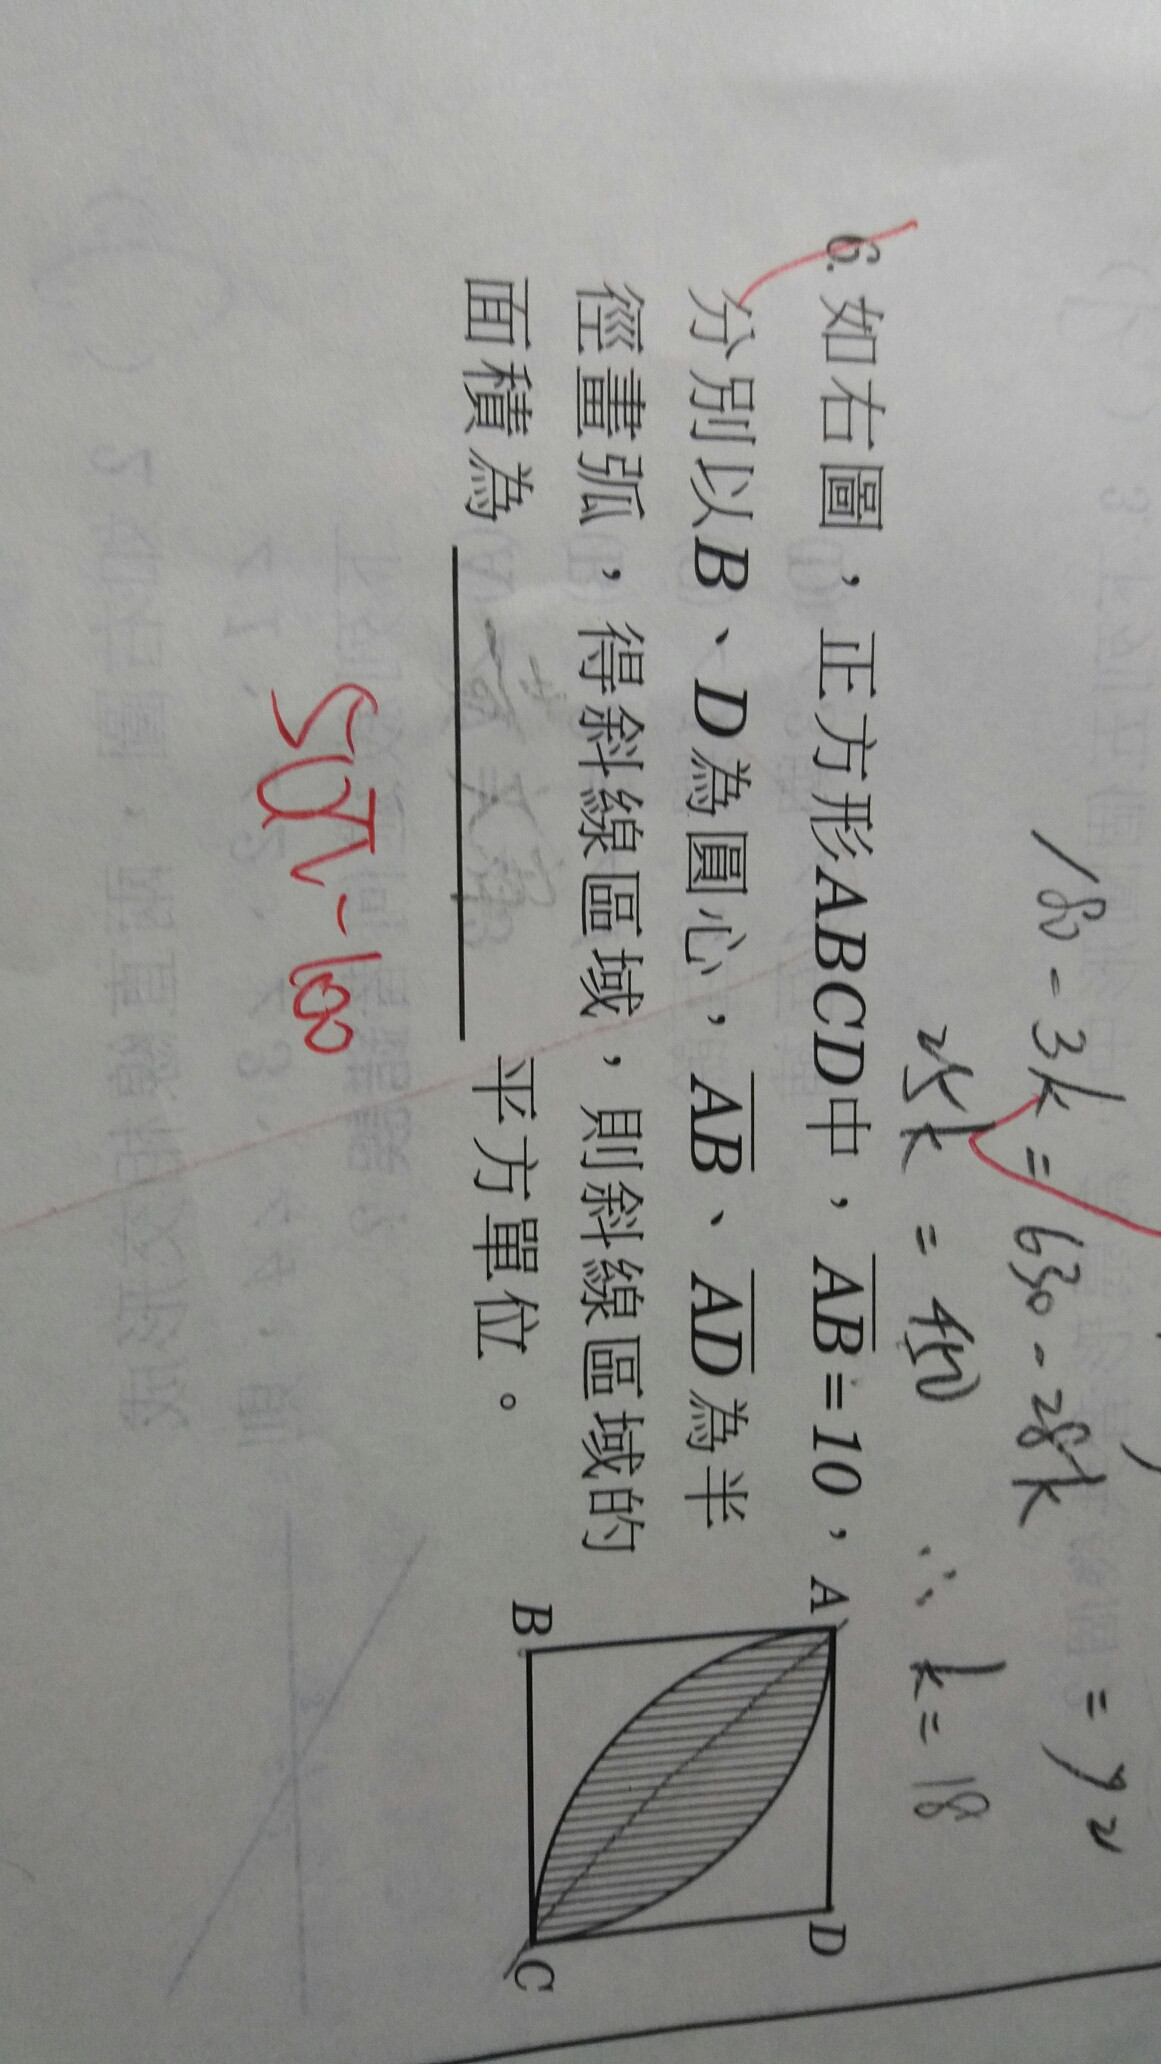 180-3k=630-28k
=92
25k=450 ∴k=18
6.如右圖，正方形ABCD中，AB=10，
分別以B、D為圓心，AB、AD為半
徑畫弧，得斜線區域，則斜線區域的
面積為 平方單位。
50π-100
A
B
D
C